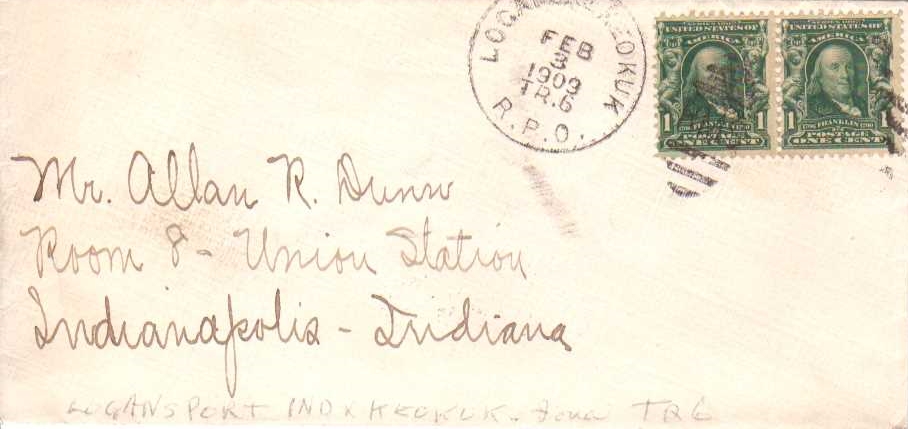 LOGAN & KEOKUK
FEB
3
1909
TR.6
R.P.O.
UNITED STATES OF
AMERICA
1 FRANKLIN 1
1706 1790
POSTAGE
ONE CENT
UNITED STATES OF
AMERICA
1 FRANKLIN 1
1706 1790
POSTAGE
ONE CENT
Mr. Allan R. Dunn
Room 8 - Union Station
Indianapolis - Indiana
LOGANSPORT IND x KEOKUK - Iowa TR 6